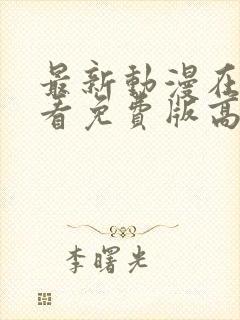 最新動漫在
看免費版高
李曙光